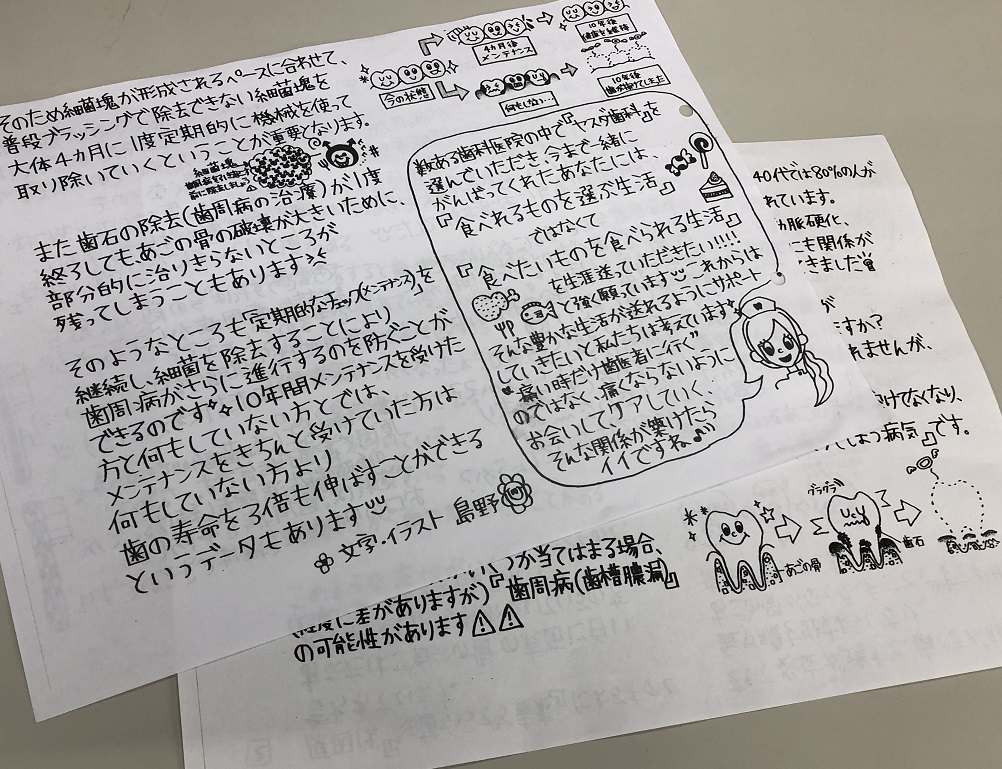 そのため細菌塊が形成されるペースに合わせて、
普段ブラッシングで除去できない細菌塊を
大体4カ月に1度定期的に機械を使って
取り除いていくということが重要となります。
細菌塊
また歯石の除去(歯周病の治療)が1度
終了しても、あごの骨の破壊が大きいために、
部分的に治りきらないところが
残ってしまうこともあります
そのようなところも「定期的なチェック(メンテナンス)」を
継続し、細菌を除去することにより
歯周病がさらに進行するのを防ぐことが
できるのです 10年間メンテナンスを受けた
方と何もしていない方とでは、
メンテナンスをきちんと受けていた方は
何もしていない方より
歯の寿命を3倍も伸ばすことができる
というデータもあります
文字・イラスト 島野
今の状態
4カ月後
メンテナンス
10年後
健康を維持
何もしない…
10年後
歯が抜けてしまった
数ある歯科医院の中で『ヤスダ歯科』を
選んでいただき、今まで一緒に
がんばってくれたあなたには、
『食べれるものを選ぶ生活』
ではなくて
『食べたいものを食べられる生活』
を生涯送っていただきたい!!!!
と強く願っています これからは
そんな豊かな生活が送れるようにサポート
していきたいと私たちは考えています
“痛い時だけ歯医者に行く”
のではなく、痛くならないように
お会いして、ケアしていく、
そんな関係が築けたら
イイですね♪
40代では80%の人が
れています。
脈硬化、
にも関係が
きました
が
ますか?
れませんが、
けてなくなり、
しまう病気』です。
グラグラ
あごの骨
歯石
つか当てはまる場合、
(程度に差がありますが)『歯周病(歯槽膿漏)』
の可能性があります